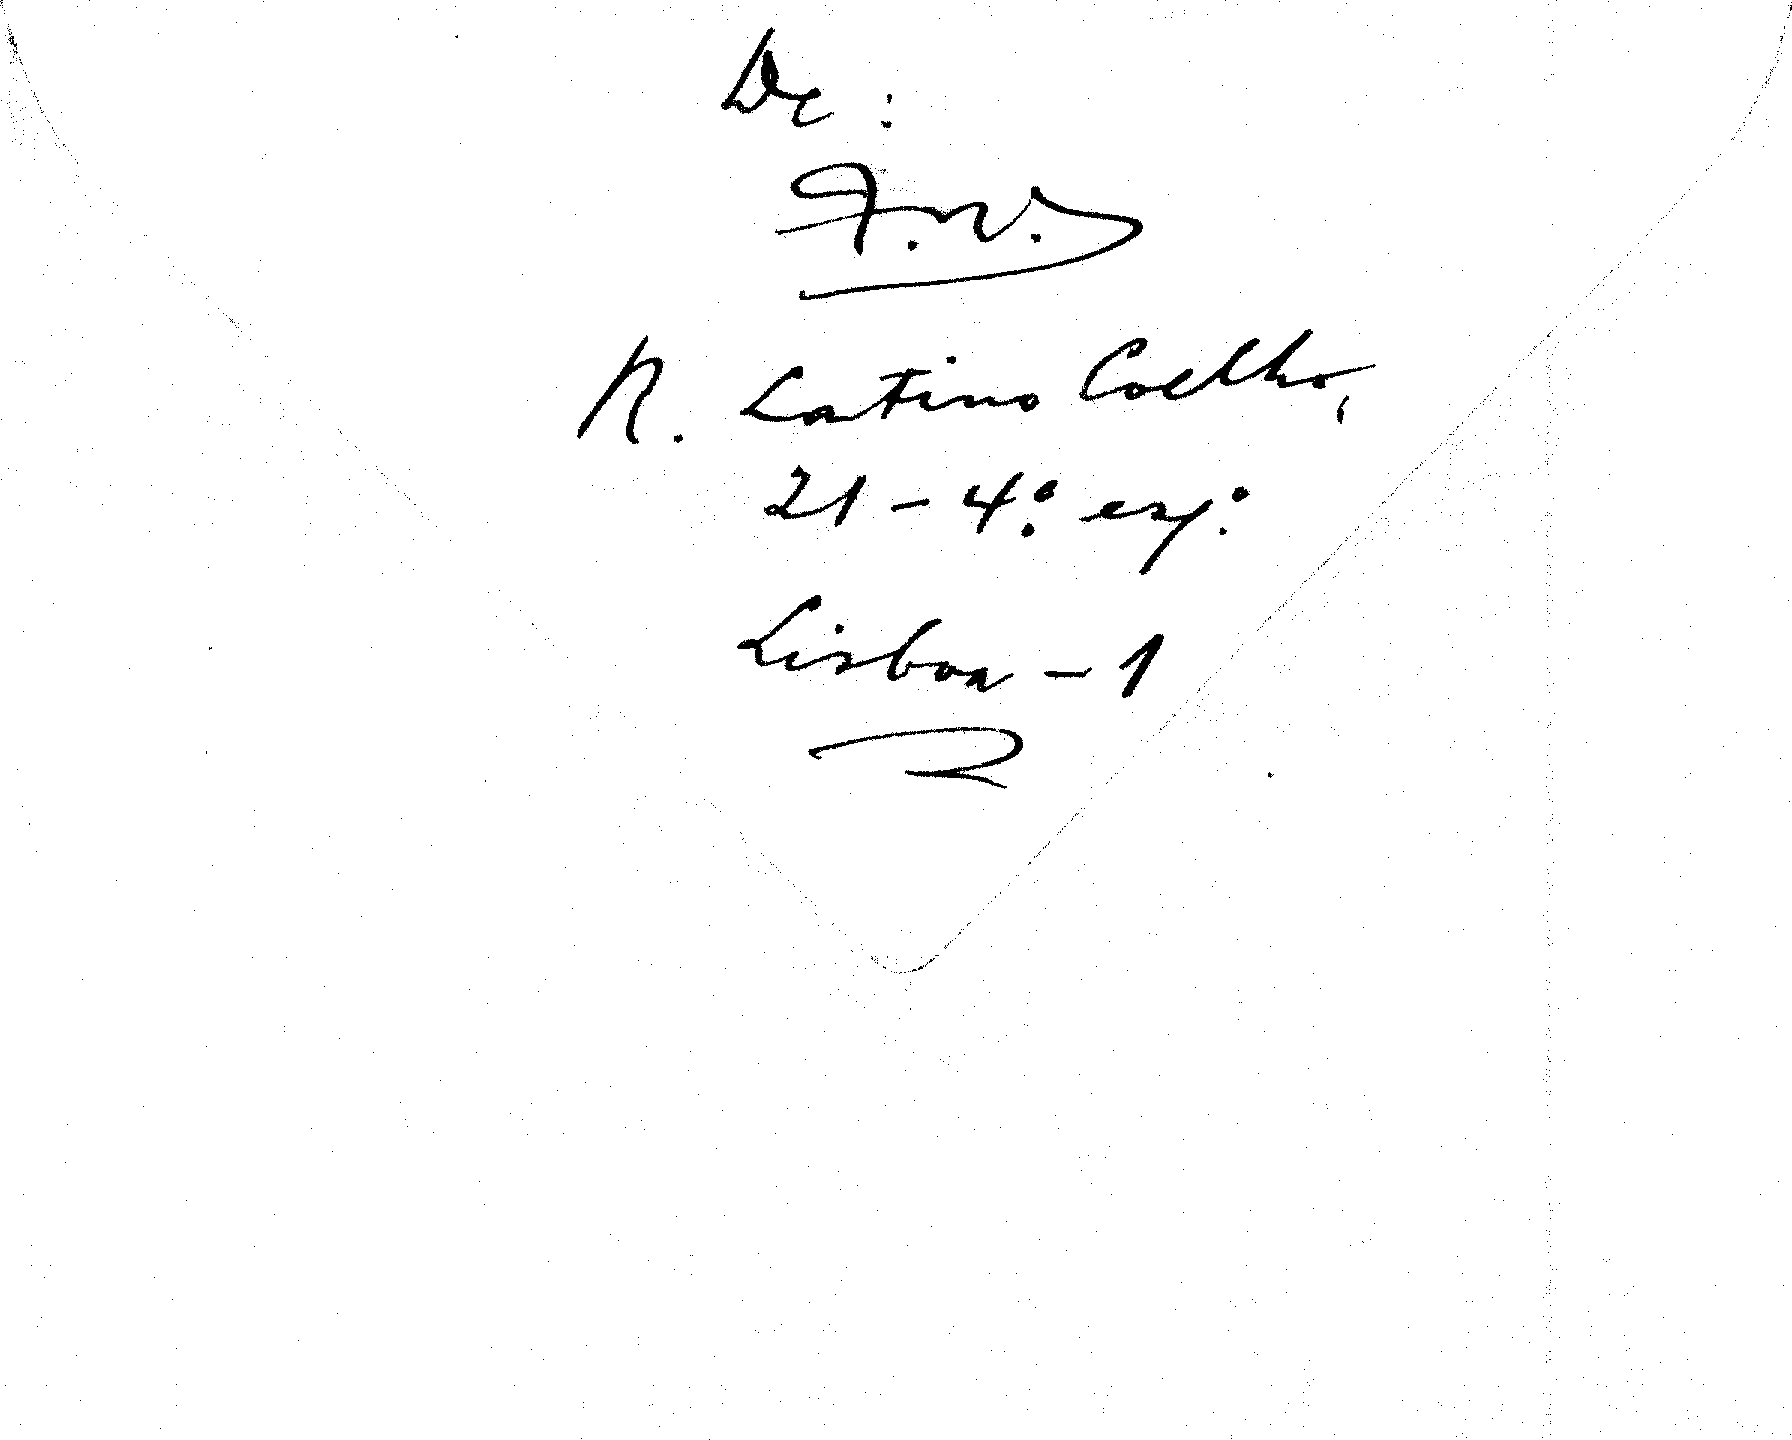 De:
F.V.
R. Latino Coelho,
21 - 4.º esq.º
Lisboa - 1